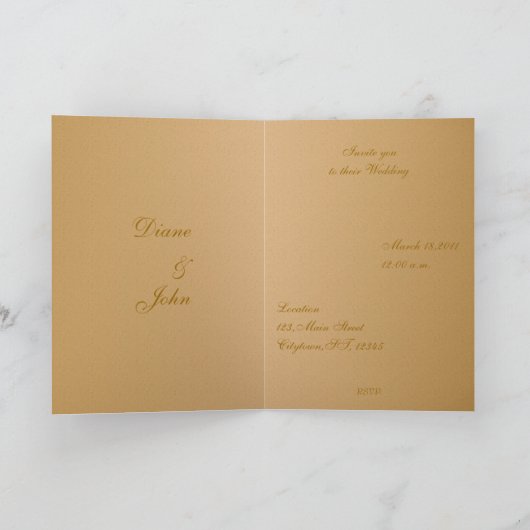 Diane
&
John
Invite you
to their Wedding
March 18,2011
12:00 a.m.
Location
123, Main Street
Citytown,ST, 12345
RSVP